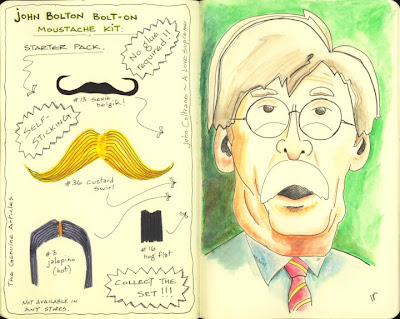 JOHN BOLTON BOLT-ON
MOUSTACHE KIT:
STARTER PACK.
No glue
required!!
#13 sexie
belgik!
SELF-
STICKING!
John Coltrane ~ A Love Supreme
#36 custard
swirl
The Genuine Articles
#3
jalapino
(hot)
#16
hog flat
COLLECT THE
SET!!!
NOT AVAILABLE IN
ANY STORES.